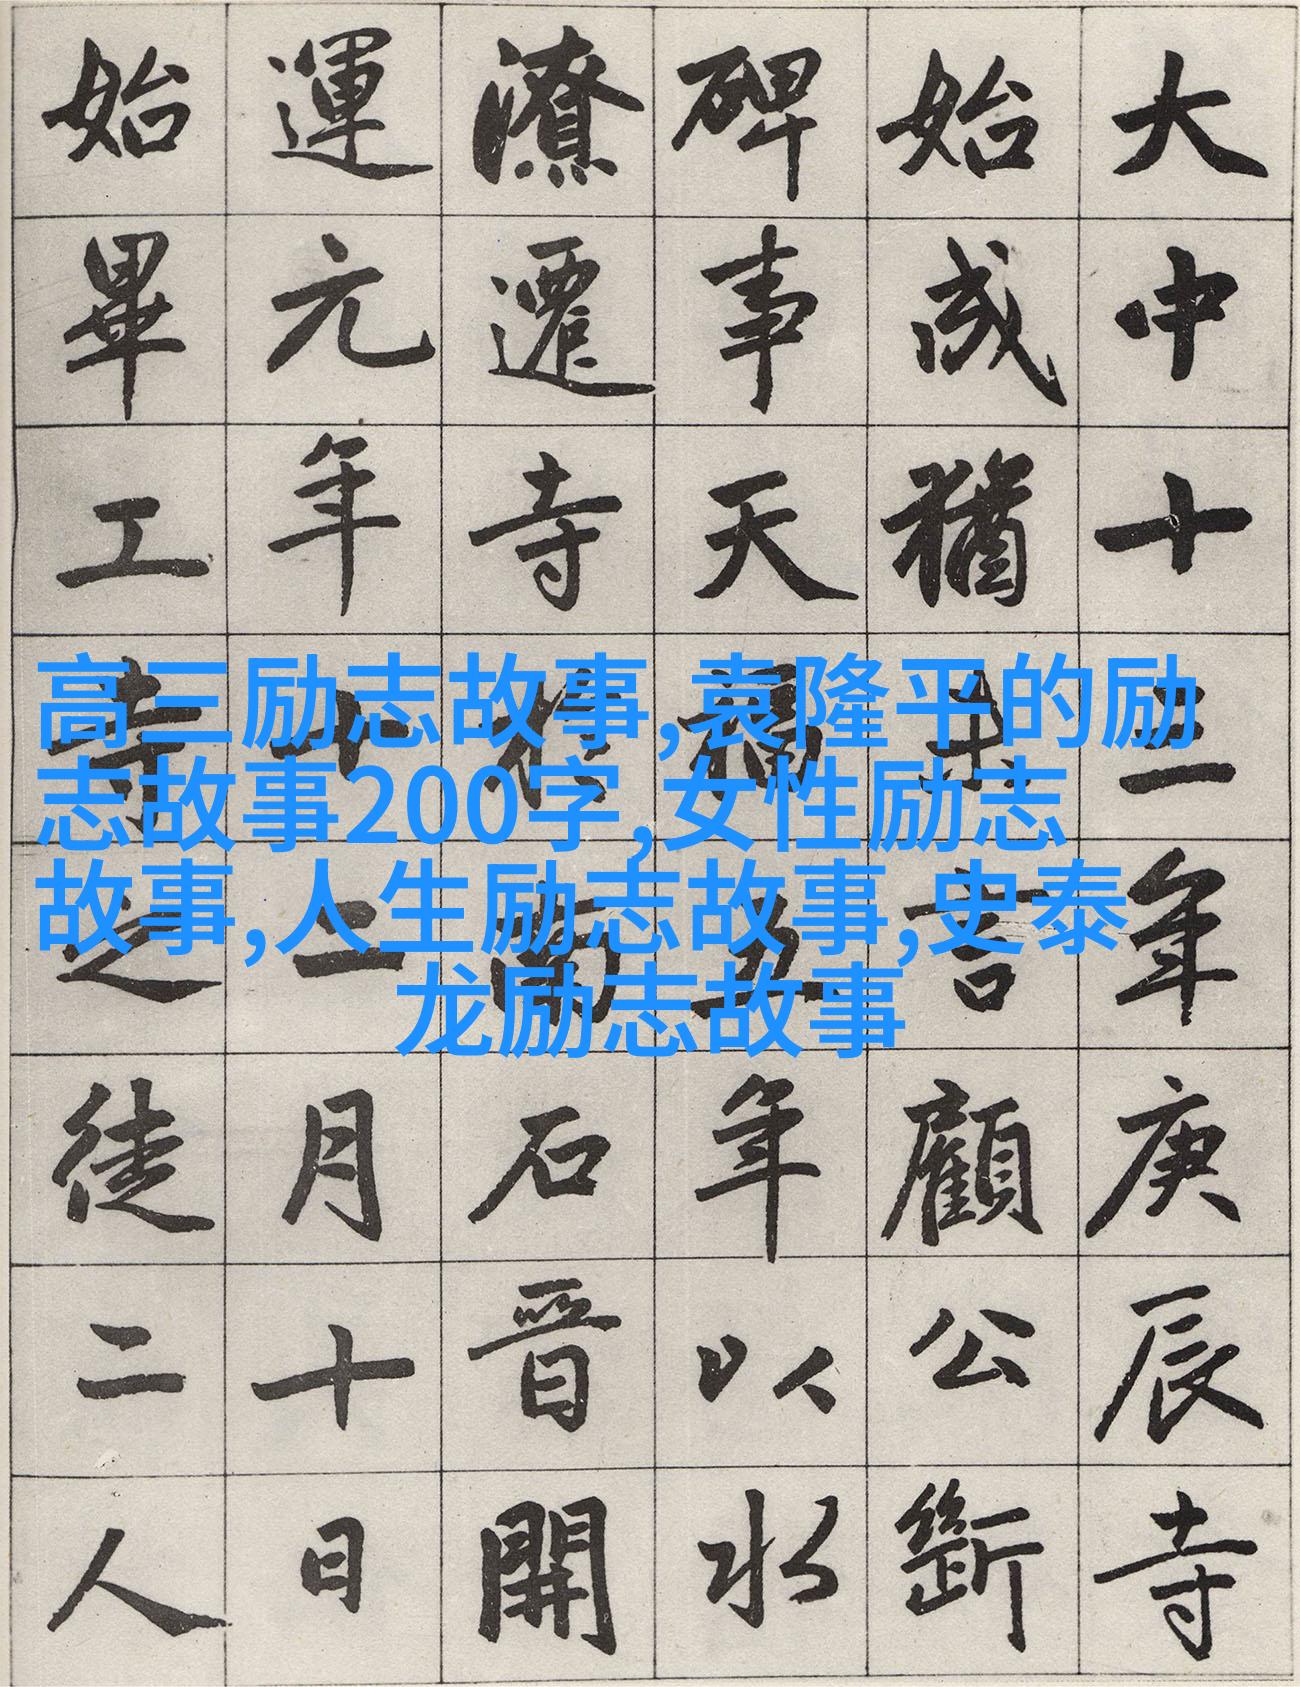 大中十三年庚辰寺
始成猶言顧公斲
碑事天福五年以水
潦遷寺南石晉開
運元年十二月十日
始畢工寺之徒二人
高三励志故事,袁隆平的励
志故事200字,女性励志
故事,人生励志故事,史泰
龙励志故事